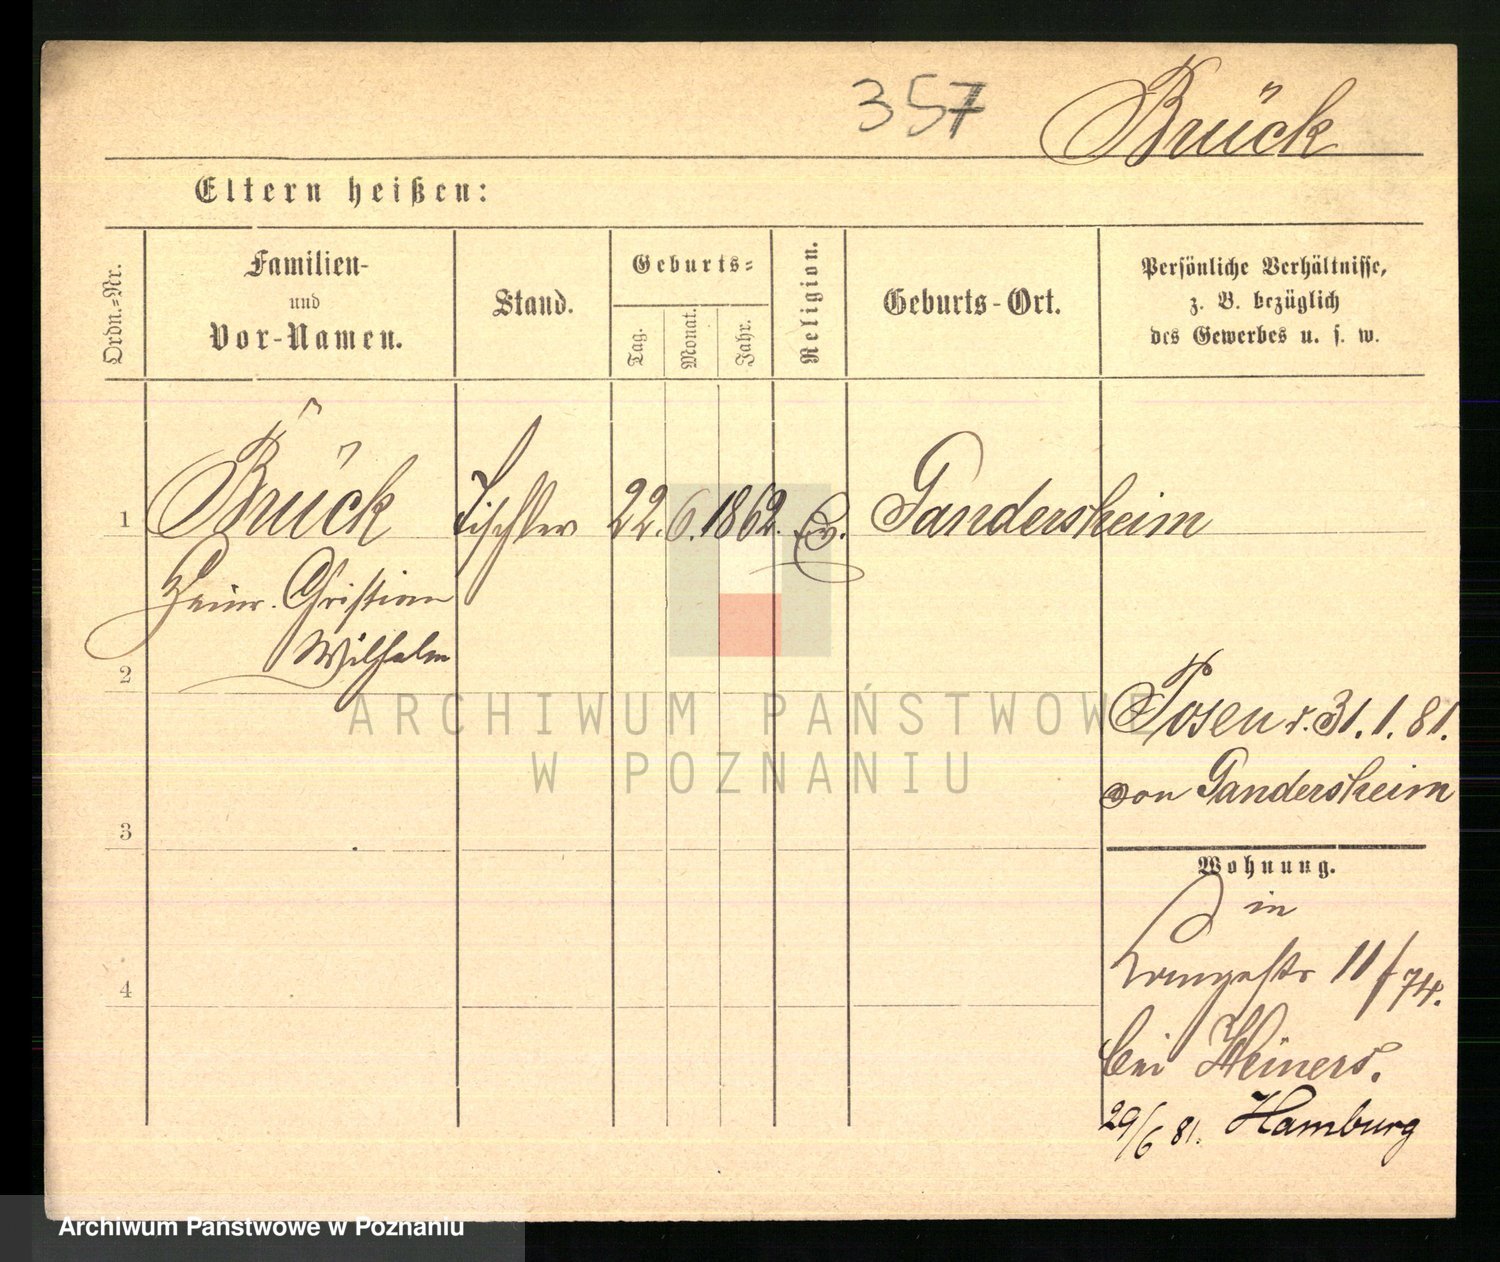 357 Brück
Eltern heißen:
Ordn.=Nr.
Familien-
und
Vor-Namen.
Stand.
Geburts=
Tag.
Monat.
Jahr.
Religion.
Geburts-Ort.
Persönliche Verhältnisse,
z. B. bezüglich
des Gewerbes u. s. w.
1 Brück Tischler 22. 6. 1862. Ev. Gandersheim
Heinr. Christian
Wilhelm
2
Posen d. 31. 1. 81.
von Gandersheim
3
Wohnung.
in
Langestr 11/74.
4
bei Heiners.
29/6 81. Hamburg
ARCHIWUM PAŃSTWOWE
W POZNANIU
Archiwum Państwowe w Poznaniu